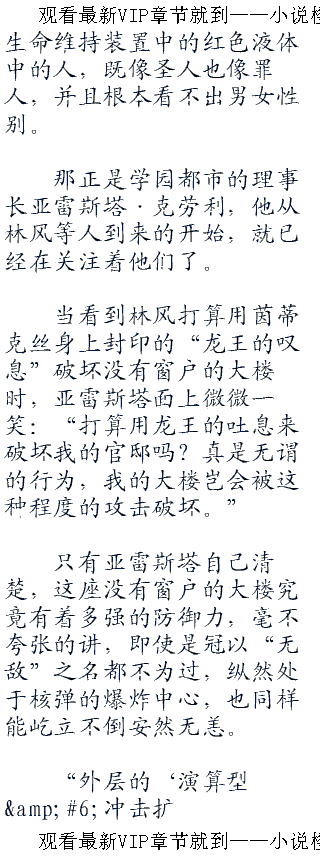 观看最新VIP章节就到一一小说榜
生命维持装置中的红色液体
中的人，既像圣人也像罪
人，并且根本看不出男女性
别。
那正是学园都市的理事
长亚雷斯塔·克劳利，他从
林风等人到来的开始，就已
经在关注着他们了。
当看到林风打算用茵蒂
克丝身上封印的“龙王的叹
息”破坏没有窗户的大楼
时，亚雷斯塔面上微微一
笑：“打算用龙王的吐息来
破坏我的官邸吗？真是无谓
的行为，我的大楼岂会被这
种程度的攻击破坏。”
只有亚雷斯塔自己清
楚，这座没有窗户的大楼究
竟有着多强的防御力，毫不
夸张的讲，即使是冠以“无
敌”之名都不为过，纵然处
于核弹的爆炸中心，也同样
能屹立不倒安然无恙。
“外层的‘演算型
&amp; #6; 冲击扩
观看最新VIP章节就到一一小说